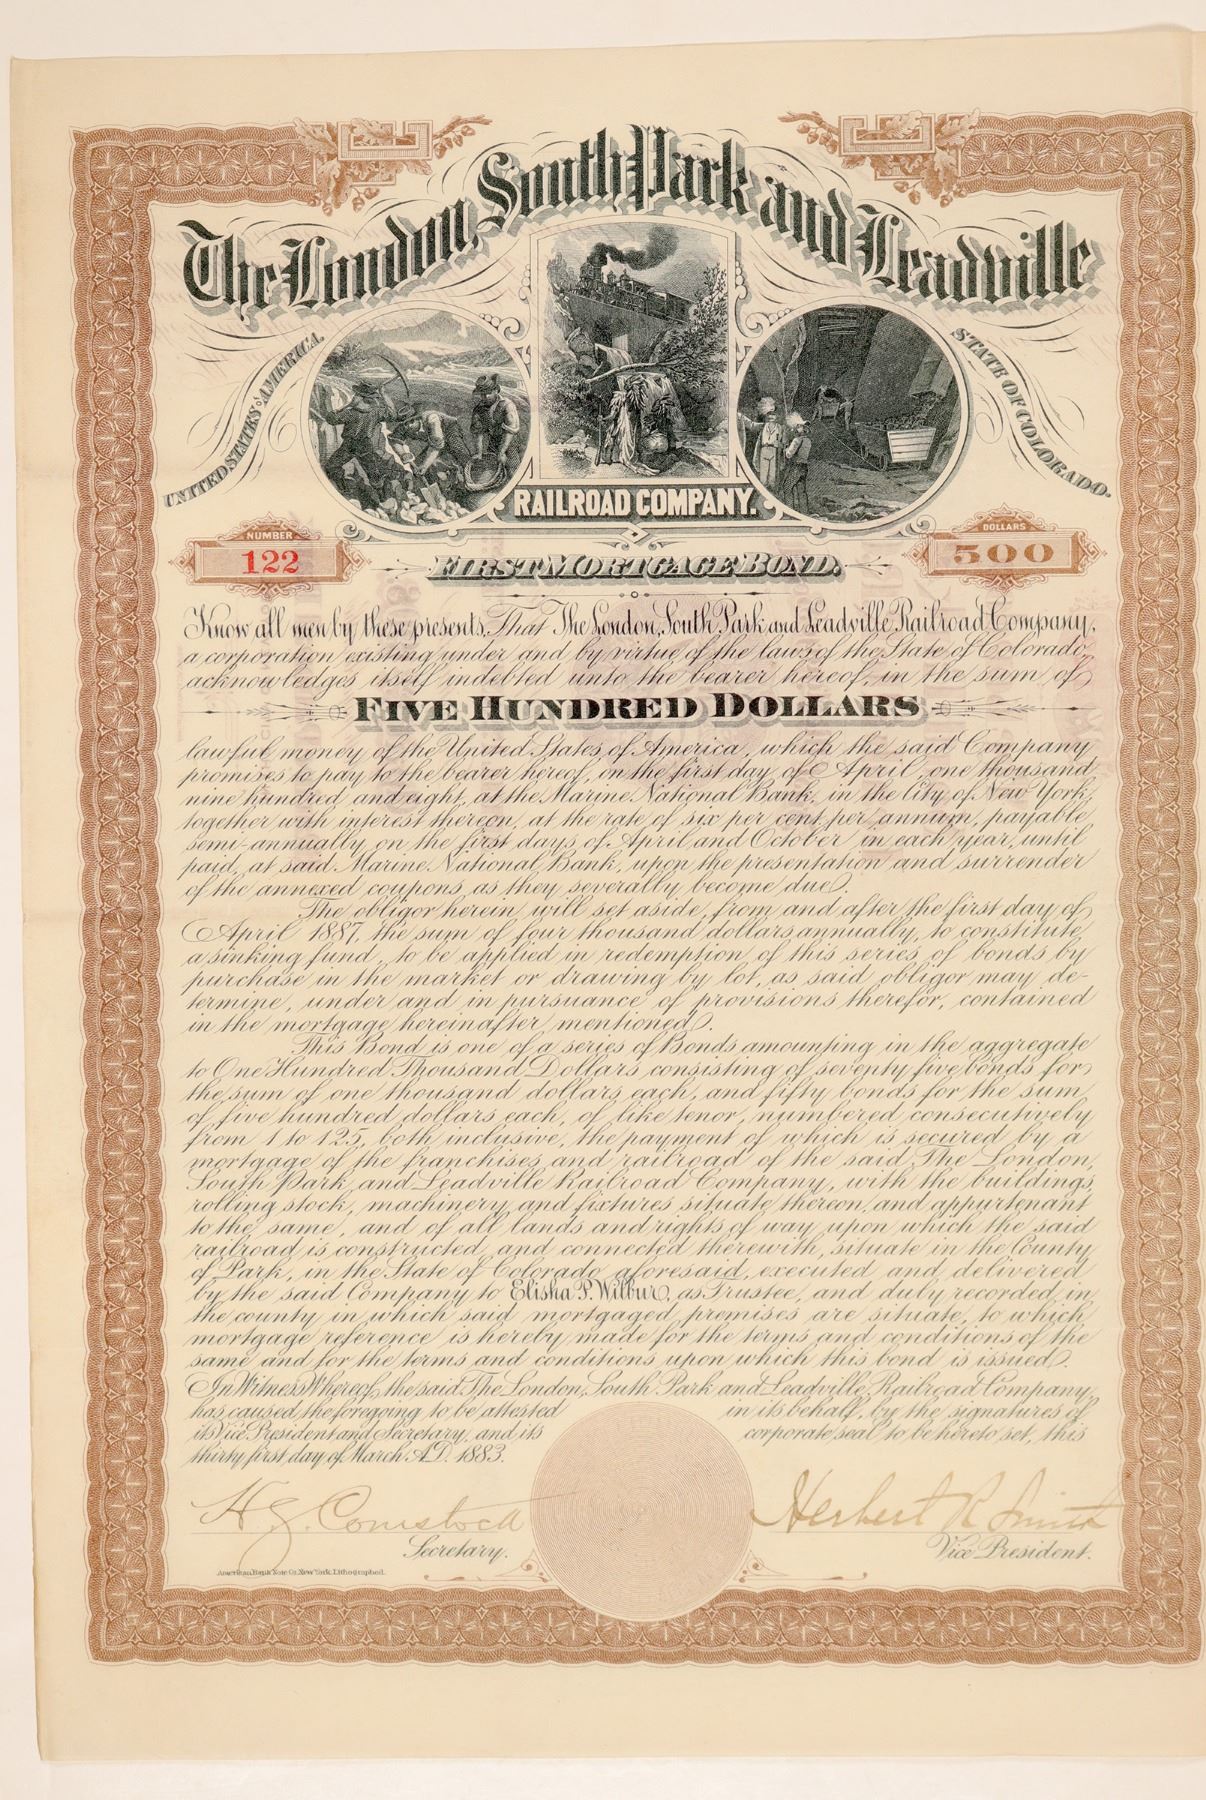 The London, South Park and Leadville
UNITED STATES OF AMERICA.
STATE OF COLORADO.
RAILROAD COMPANY.
NUMBER
122
DOLLARS
500
FIRST MORTGAGE BOND.
Know all men by these presents, That The London, South Park and Leadville Railroad Company,
a corporation existing under and by virtue of the laws of the State of Colorado,
acknowledges itself indebted unto the bearer hereof, in the sum of
FIVE HUNDRED DOLLARS
lawful money of the United States of America, which the said Company
promises to pay to the bearer hereof, on the first day of April, one thousand
nine hundred and eight, at the Marine National Bank, in the City of New York,
together with interest thereon, at the rate of six per cent. per annum, payable
semi-annually on the first days of April and October in each year, until
paid, at said Marine National Bank, upon the presentation and surrender
of the annexed coupons, as they severally become due.
The obligor herein will set aside, from and after the first day of
April 1887, the sum of four thousand dollars annually, to constitute
a sinking fund, to be applied in redemption of this series of bonds by
purchase in the market or drawing by lot, as said obligor may de-
termine, under and in pursuance of provisions therefor, contained
in the mortgage hereinafter mentioned.
This Bond is one of a series of Bonds amounting in the aggregate
to One Hundred Thousand Dollars consisting of seventy five bonds for
the sum of one thousand dollars each, and fifty bonds for the sum
of five hundred dollars each, of like tenor, numbered consecutively
from 1 to 125, both inclusive, the payment of which is secured by a
mortgage of the franchises and railroad of the said, The London,
South Park and Leadville Railroad Company, with the buildings,
rolling stock, machinery and fixtures situate thereon, and appurtenant
to the same, and of all lands and rights of way upon which the said
railroad is constructed, and connected therewith, situate in the County
of Park, in the State of Colorado, aforesaid, executed and delivered
by the said Company to Elisha P. Wilbur, as Trustee, and duly recorded in
the county in which said mortgaged premises are situate, to which
mortgage reference is hereby made for the terms and conditions of the
same and for the terms and conditions upon which this bond is issued.
In Witness Whereof, the said, The London, South Park and Leadville Railroad Company,
has caused the foregoing to be attested in its behalf, by the signatures of
its Vice President and Secretary, and its corporate seal to be hereto set, this
thirty first day of March A.D. 1883.
H. G. Comstock
Secretary.
Herbert R Smith
Vice President.
American Bank Note Co. New York. Lithographed.